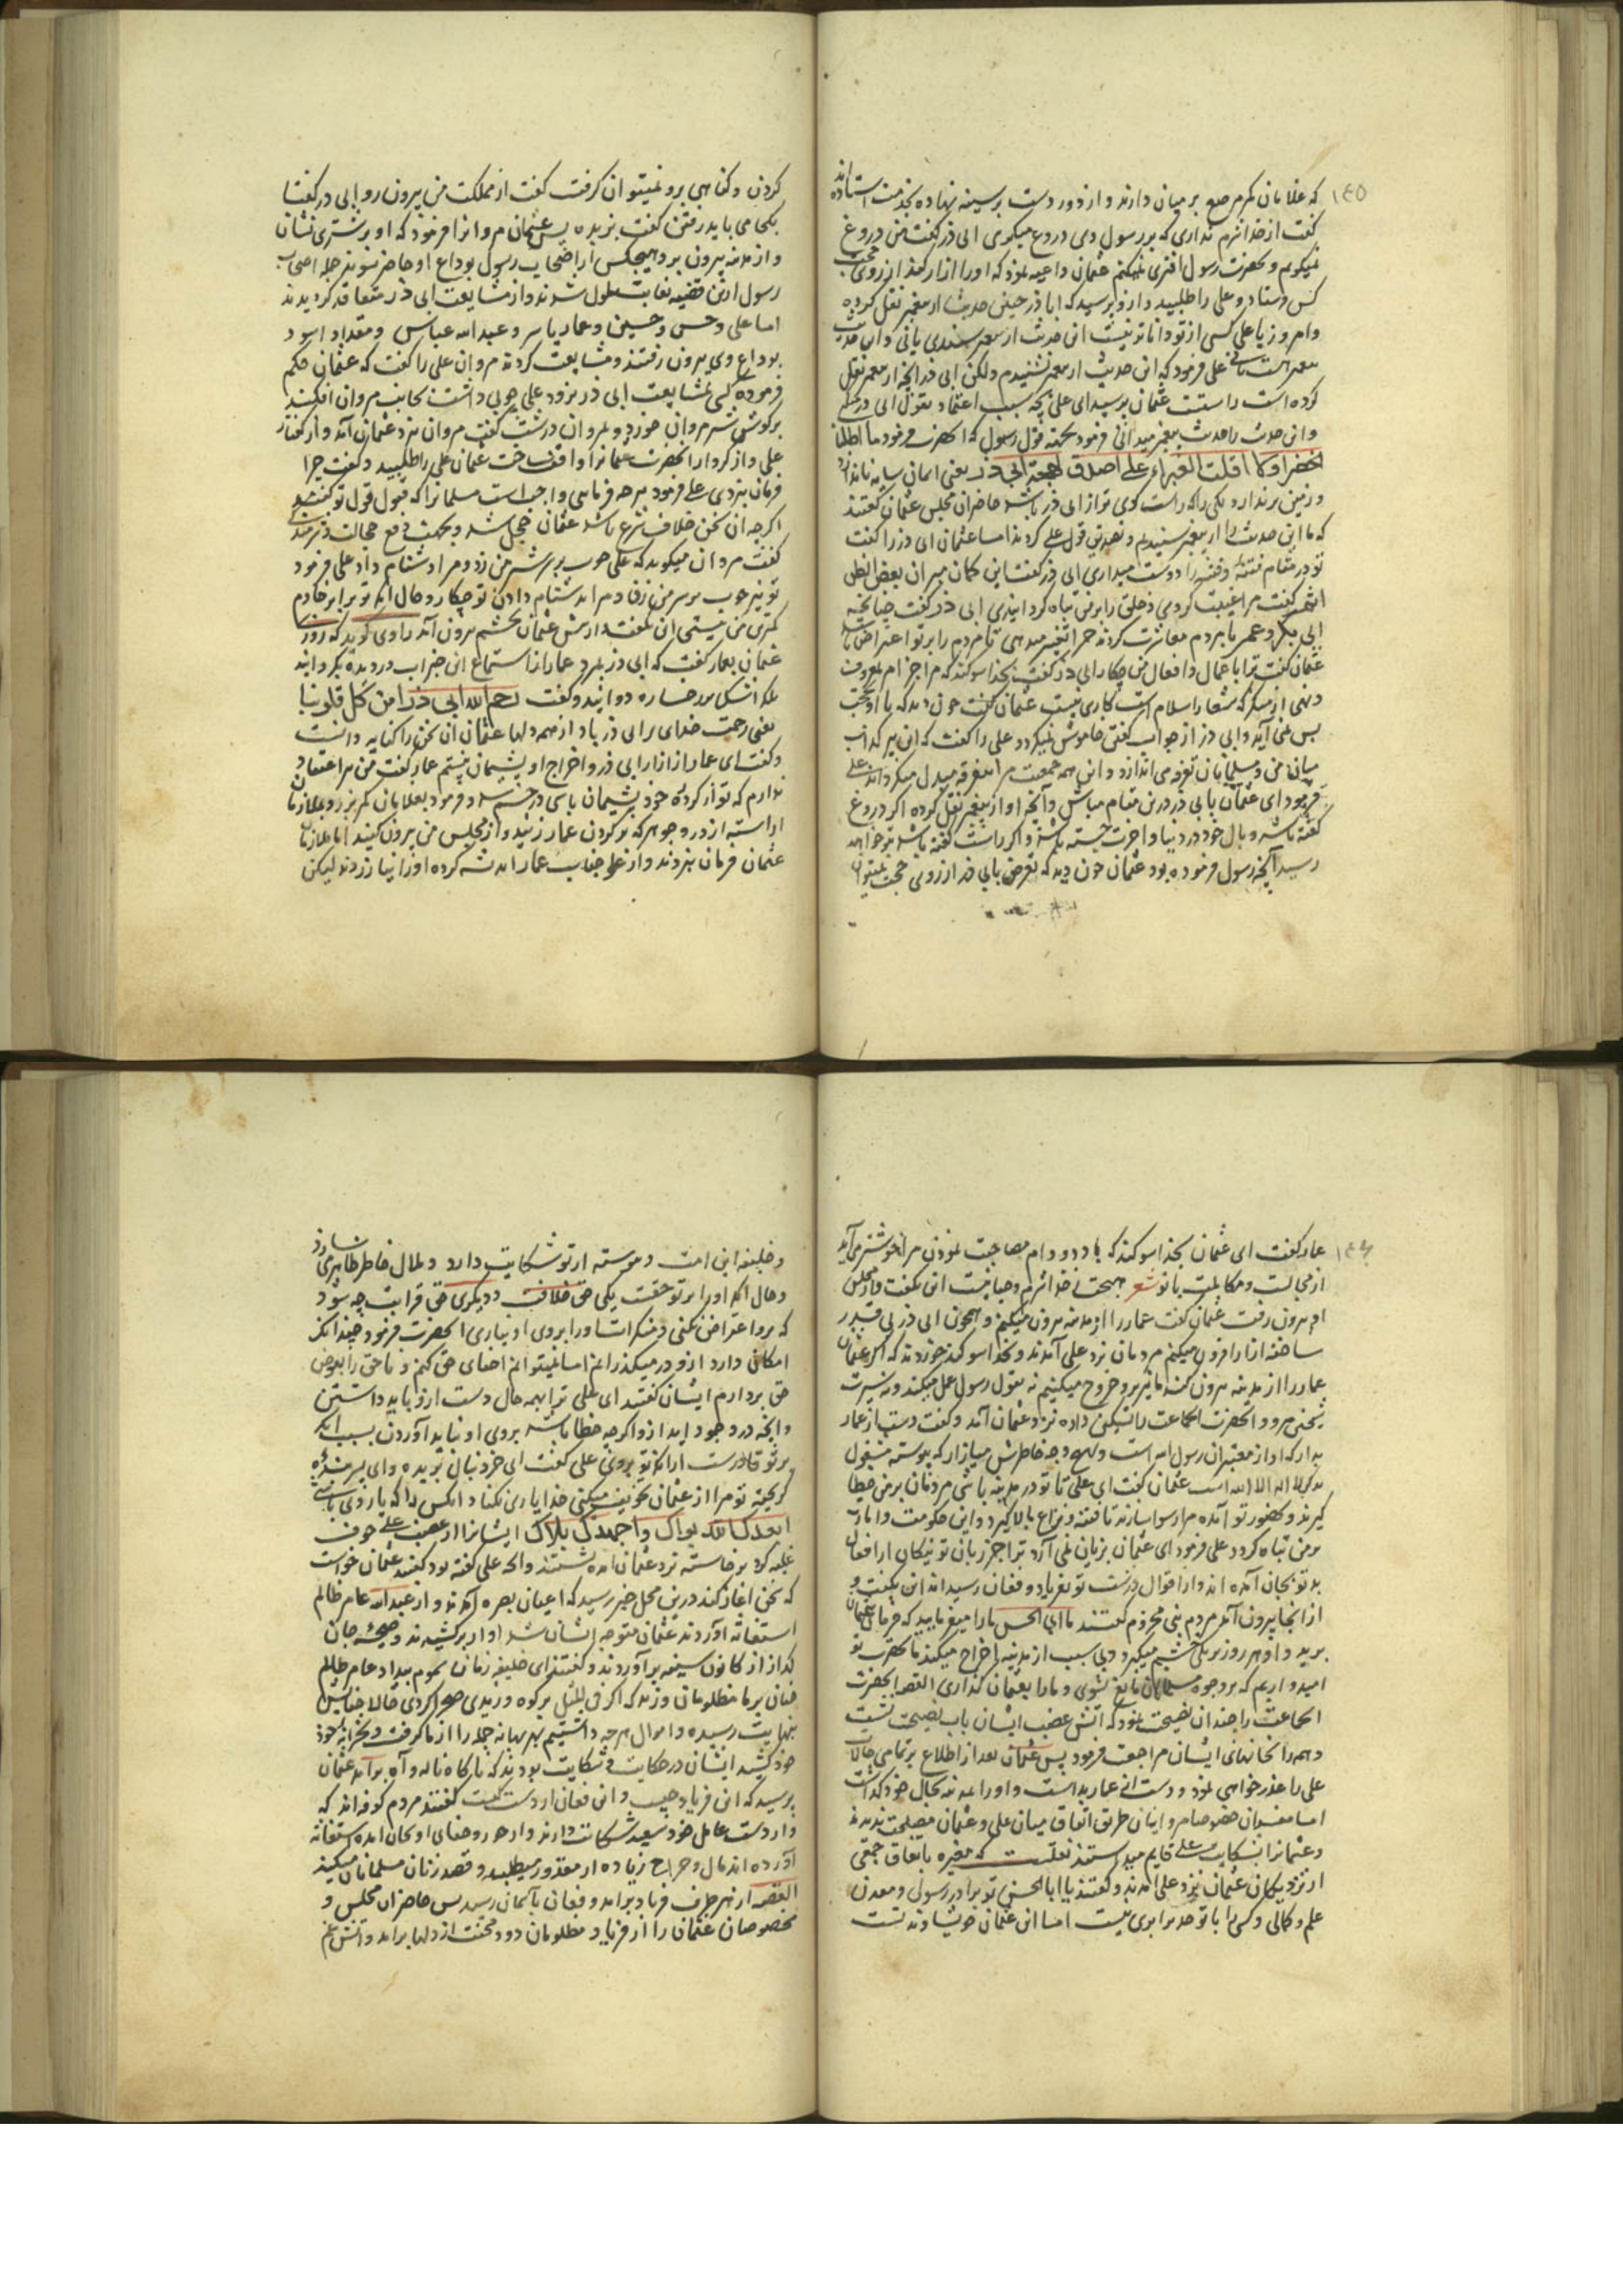 ١٤٥
که غلامان کمر مرصع بر میان دارند و از دور دست بر سینه نهاده بخدمت استاده اند
گفت از خدا شرم نداری که بر رسول وی دروغ میکوی ابی ذر گفت من دروغ
نمیکویم و بحضرت رسول افتری نمیکنم عثمان داعیه نمود که او را ازار کند از روی محبت
کس فرستاد و علی را طلبید و ازو پرسید که اباذر چنین حدیث از پیغمبر نقل کرده
وامروز یا علی کسی از تو داناتر نیست این حدیث از پیغمبر شنیدی یا نی و این حدیث
علی فرمود که این حدیث از پیغمبر نشنیدم ولکن ابی ذر انچه از پیغمبر نقل
کرده است راستست عثمان پرسید ای علی بچه سبب اعتماد بقول ابی ذر
و این حدیث را حدیث پیغمبر میدانی فرمود بجهة قول رسول که انحضرت فرمود ما اظلت
الخضرا ولا اقلت الغبراء علی اصدق لهجة ابی ذر یعنی آسمان سایه نیانداخت
و زمین برندارد یکی را که راست کوی تر از ابی ذر باشد حاضران مجلس عثمان گفتند
که ما این حدیث را از پیغمبر شنیدیم و تصدیق قول علی کردند اما عثمان ابی ذر را گفت
تو در مقام فتنهٔ و فتنه را دوست میداری ابی ذر گفت این کمان مبر ان بعض الظن
اثم گفت مرا غیبت کردی و خلق را بر من تباه کردانیدی ابی ذر گفت چنانچه
ابی بکر و عمر با مردم معاشرت کردند چرا تغیر میدهی تا مردم را بر تو اعتراض باشد
عثمان گفت ترا با اعمال و افعال من چکار ابی ذر گفت بخدا سوکند که مرا جز امر بمعروف
و نهی از منکر که شعار اسلام است کاری نیست عثمان گفت چون دید که با او بحجت
بس نمی آید و ابی ذر از جواب گفتن خاموش نمیکردد علی را گفت که این پیر کذاب
میان من و مسلمانان تفرقه می اندازد و این همه جمعیت مرا بتفرقه مبدل میکرداند علی
فرمود ای عثمان با ابی ذر درین مقام مباش و آنچه او از پیغمبر نقل کرده اکر دروغ
گفته باشد وبال خود در دنیا و اخرت جسته باشد و اکر راست گفته باشد بتو خواهد
رسید آنچه رسول فرموده بود عثمان چون دید که تعرض بابی ذر از روی حجت نمیتوان
کردن و کناهی برو نمیتوان کرفت گفت از مملکت من بیرون رو ابی ذر گفت
بکجا می باید رفتن گفت بربذه پس عثمان مروانرا فرمود که او بر شتری نشان
و از مدینه بیرون بر و هیچکس از اصحاب رسول بوداع او حاضر نشوند جمله اصحاب
رسول ازین قضیه بغایت ملول شدند و از مشایعت ابی ذر متقاعد کردیدند
اما علی و حسن و حسین و عمار یاسر و عبد الله عباس و مقداد اسود
بوداع وی بیرون رفتند و مشایعت کردند مروان علی را گفت که عثمان حکم
فرموده کسی بمشایعت ابی ذر نرود علی چوبی داشت بجانب مروان افکند
بر کوش شتر مروان خورد و مروان درشت گفت مروان نزد عثمان آمد و از گفتار
علی و از کردار انحضرت عثمانرا واقف ساخت عثمان علی را طلبید و گفت چرا
فرمان نبردی علی فرمود بر هر فرمانی واجب است مسلمانرا که قبول قول تو کنند
اکرچه ان سخن خلاف شرع باشد عثمان خجل شد و بجهت دفع خجالت
گفت مروان میکوید که علی چوب بر سر شتر من زد و مرا دشنام داد علی فرمود
تو نیز چوب بر سر من زن و مرا دشنام دادن تو چکار و حال انکه تو برابر خادم
کمترین من نیستی این بگفت و از پیش عثمان بخشم بیرون آمد راوی کوید که روزی
عثمان بعمار گفت که ابی ذر بمرد عمار از استماع این خبر آب در دیده بکردانید
بلکه اشک بر رخساره دوانید و گفت رحم الله ابی ذر ا من کل قلوبنا
یعنی رحمت خدای بر ابی ذر باد از همه دلها عثمان آن سخن را کنایه دانست
و گفت ای عمار از ازار ابی ذر و اخراج او پشیمان نیستم عمار گفت من مر اعتقاد
ندارم که تو از کردهٔ خود پشیمان باشی در خشم شد و فرمود بغلامان کمر بزر و ملازمان
اراسته از در و جوهر که بر کردن عمار زنید و از مجلس من بیرون کنید اما ملازمان
عثمان فرمان نبردند و از علو جناب عمار اندیشه کرده او را نیازردند لیکن
١٤٦
عمار گفت ای عثمان بخدا سوکند که با دد و دام مصاحبت نمودن مرا خوشتر می آید
از مجالست و مکالمت با تو شعر هیچت ز خدا شرم و حیا نیست این بگفت و از مجلس
او بیرون رفت عثمان گفت عمار را از مدینه بیرون میکنم و همچون ابی ذر بی قدر
ساخته ازار افزون میکنم مردمان نزد علی آمدند و بخدا سوکند خوردند که اکر عثمان
عمار را از مدینه بیرون کند ما نیز برو خروج میکنیم نه بقول رسول عمل میکند و نه بسیرت
شیخین میرود انحضرت انجماعت را تسکین داده نزد عثمان آمد و گفت دست از عمار
بدار که او از معتبران رسول الله است و بهیچ وجه خاطرش میازار که پیوسته مشغول
بذکر لا اله الا الله است عثمان گفت ای علی تا تو در مدینه باشی مردمان بر من خطا
کیرند و بحضور تو آمده مرا رسوا سازند تا فتنه و نزاع بالا کیرد و این حکومت و امارت
بر من تباه کردد علی فرمود ای عثمان بزبان نمی آرد ترا جز زبان تو نیکان از افعال
بد تو بجان آمده اند و از اقوال درشت تو بفریاد و فغان رسیده اند این بگفت و
از انجا بیرون آمد مردم بنی مخزوم گفتند یا ابا الحسن ما را میفرمایید که فرمان عثمان
برید و او هر روز بر یکی خشم میکیرد و بی سبب از مدینه اخراج میکند ما بحضرت تو
امید واریم که بر وجوه مسلمانان مانع شوی و ما را بعثمان نکذاری القصه انحضرت
انجماعت را چندان نصیحت نمود که آتش غضب ایشان بآب نصیحت نشست
و همه را بخانهای ایشان مراجعت فرمود پس عثمان بعد از اطلاع بر تمامی حالات
علی را عذر خواهی نمود و دست از عمار بداشت و او را بمدینه بحال خود گذاشت
اما مفسدان خصوصا مروانیان طریق اتفاق میان علی و عثمان مصلحت ندیدند
و عثمانرا بشکایت علی قایم میداشتند نقلست که مغیره باتفاق جمعی
از نزدیکان عثمان نزد علی آمدند و گفتند یا ابا الحسن تو برادر رسولی و معدن
علم و کمالی و کسی را با تو حد برابری نیست اما این عثمان خویشاوند تست
و خلیفه این امت و پیوسته از تو شکایت دارد و ملال خاطر ظاهر می سازد
و حال انکه او را بر تو حقست یکی حق خلافت و دیکری حق قرابت چه شود
که برو اعتراض نکنی و منکرات او را بروی او نیاری انحضرت فرمود چندانکه
امکان دارد ازو در میکذرانم اما نمیتوانم اخفای حق کنم و ناحق را بعوض
حق بردارم ایشان گفتند ای علی ترا بهمه حال دست ازو باید داشتن
و انچه در وجود اید ازو اکرچه خطا باشد بروی او نباید آوردن بسبب انکه
بر تو قادرست از انکه تو بروی علی گفت ای خر دنبال بریده و ای پسر بندهٔ
کریخته تو مرا از عثمان تخویف میکنی خدا یاری نکناد انکس را که یار وی باشی
ابعدک الله نواک واجهدک بلاک ایشانرا از غضب علی خوف
غلبه کرد برخاسته نزد عثمان آمده نشستند و انچه علی گفته بود گفتند عثمان خواست
که سخن اغاز کند درین محل خبر رسید که اعیان بصره آمدند و از عبد الله عامر ظالم
استغاثه آوردند عثمان متوجه ایشان شد اواز برکشیدند و صیحهٔ جان
کداز از کانون سینه برآوردند و گفتند ای خلیفه زمان سموم بیداد عامر ظالم
چنان بر ما مظلومان وزید که اکر فی المثل بر کوه وزیدی صحرا کردی حالا
بنهایت رسیده و اموال هرچه داشتیم بهر بهانه جمله را از ما کرفت و بخزانه خود
خود کشید ایشان در حکایت و شکایت بودند که ناکاه ناله و آه برآمد عثمان
پرسید که این فریاد چیست و این فغان از دست کیست گفتند مردم کوفه اند که
از دست عامل خود سعید شکایت دارند و از جور و جفای او بجان آمده استغاثه
آورده اند مال و خراج زیاده از مقدور میطلبد و قصد زنان مسلمانان میکند
القصه از هر طرف فریاد برآمد و فغان باسمان رسید پس حاضران مجلس و
مخصوصان عثمان را از فریاد مظلومان دود محنت از دلها برآمد و آتش غم